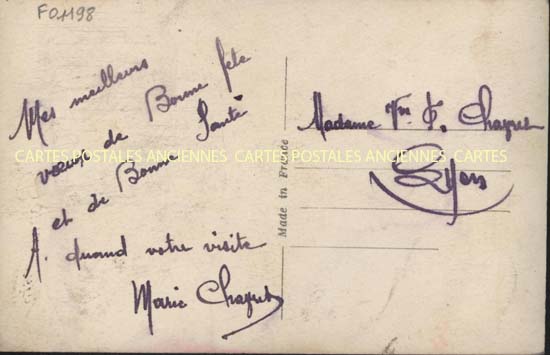 F01198
Mes meilleurs
vœux de Bonne fête
et de Bonne Santé
A quand votre visite
Marie
Made in France
Madame
Lyon
CARTES POSTALES ANCIENNES CARTES POSTALES ANCIENNES CARTES